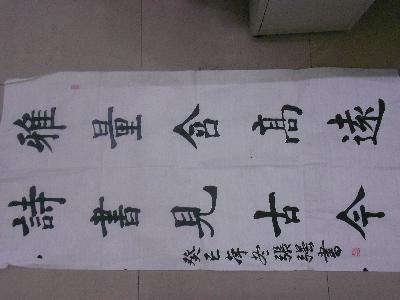 雅量含高遠
詩書見古今
癸巳張強書